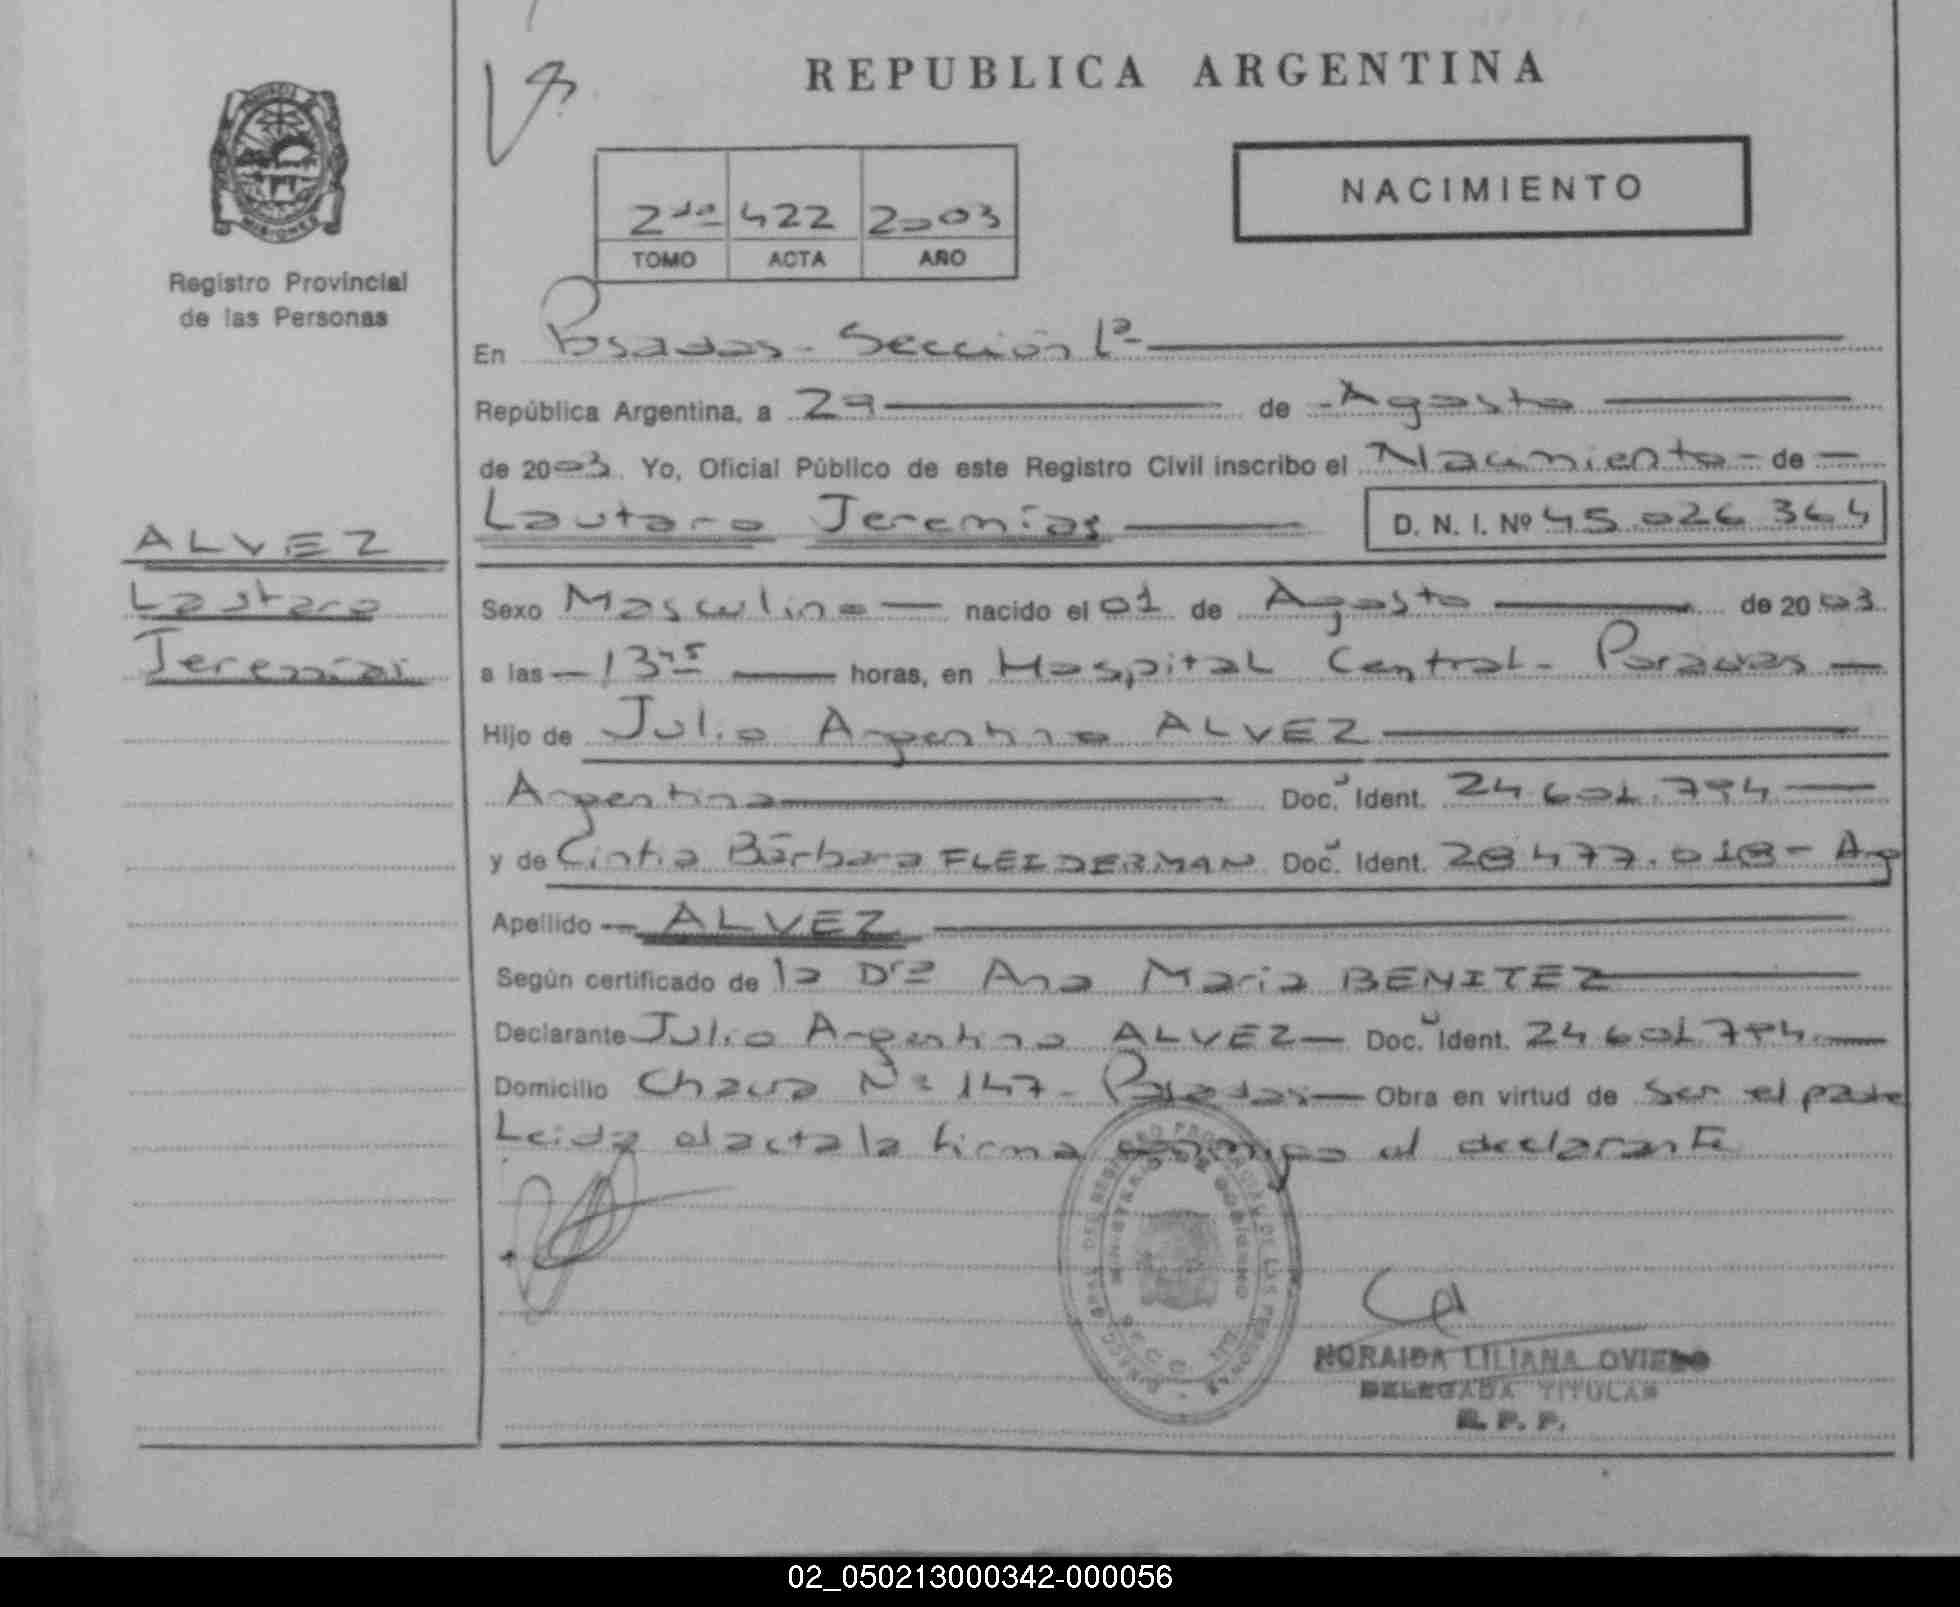 REPUBLICA ARGENTINA
NACIMIENTO
MISIONES
Registro Provincial
de las Personas
2da 422 2003
TOMO ACTA AÑO
En Posadas - Sección 1a
República Argentina, a 29 de Agosto
de 2003 Yo, Oficial Público de este Registro Civil inscribo el Nacimiento de
Lautaro Jeremías D. N. I. Nº 45.026.364
ALVEZ
Lautaro
Jeremías
Sexo Masculino nacido el 01 de Agosto de 2003
a las 13 45 horas, en Hospital Central - Posadas
Hijo de Julio Argentino ALVEZ
Argentina Doc. Ident. 24.601.794
y de Cintia Bárbara FLEIDERMAN Doc. Ident. 28.477.018 - Arg
Apellido ALVEZ
Según certificado de la Dra Ana Maria BENITEZ
Declarante Julio Argentino ALVEZ Doc. Ident. 24.601.794
Domicilio Chacra Nº 147 - Posadas Obra en virtud de ser el padre
Leida el acta la firma conmigo el declarante
NORAIDA LILIANA OVIEDO
DELEGADA TITULAR
R. P. P.
02_050213000342-000056